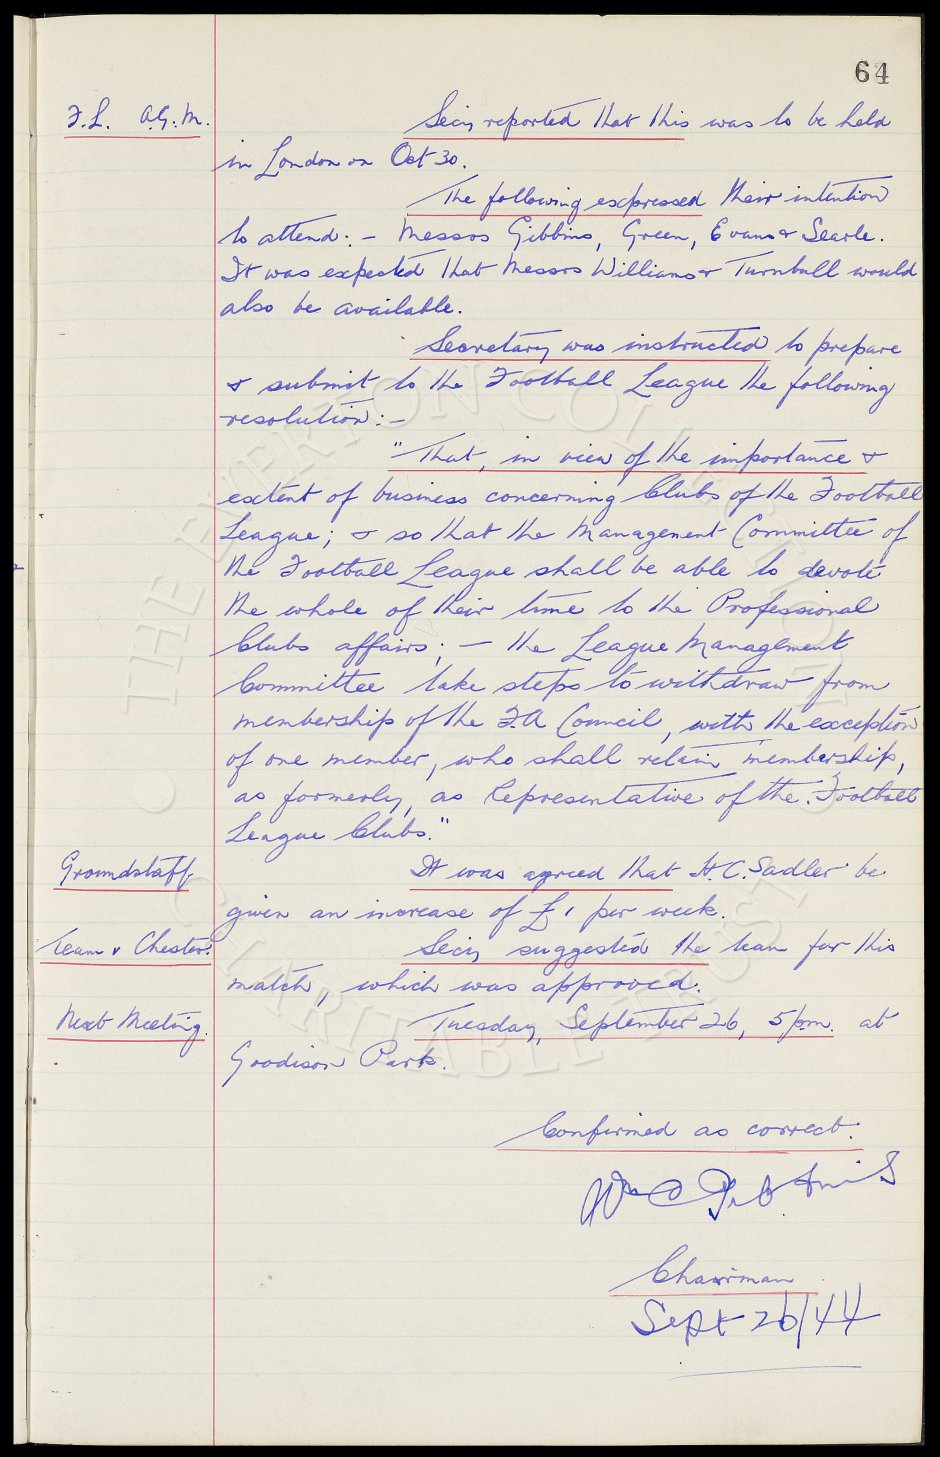 64
F.L. A.G.M. Secy reported that this was to be held
in London on Oct 30.
The following expressed their intention
to attend:- Messrs Gibbins, Green, Evans & Searle.
It was expected that Messrs Williams & Turnbull would
also be available.
Secretary was instructed to prepare
& submit to the Football League the following
resolution:-
"That, in view of the importance &
extent of business concerning Clubs of the Football
League; & so that the Management Committee of
the Football League shall be able to devote
the whole of their time to the Professional
Clubs affairs; - the League Management
Committee take steps to withdraw from
membership of the F.A Council, with the exception
of one member, who shall retain membership,
as formerly, as Representative of the Football
League Clubs."
Groundstaff It was agreed that H.C. Sadler be
given an increase of £1 per week.
Team v Chester. Secy suggested the team for this
match, which was approved.
Next Meeting. Tuesday, September 26, 5 p.m. at
Goodison Park.
Confirmed as correct.
Wm C Gibbins
Chairman
Sept 26/44
THE EVERTON COLLECTION
CHARITABLE TRUST